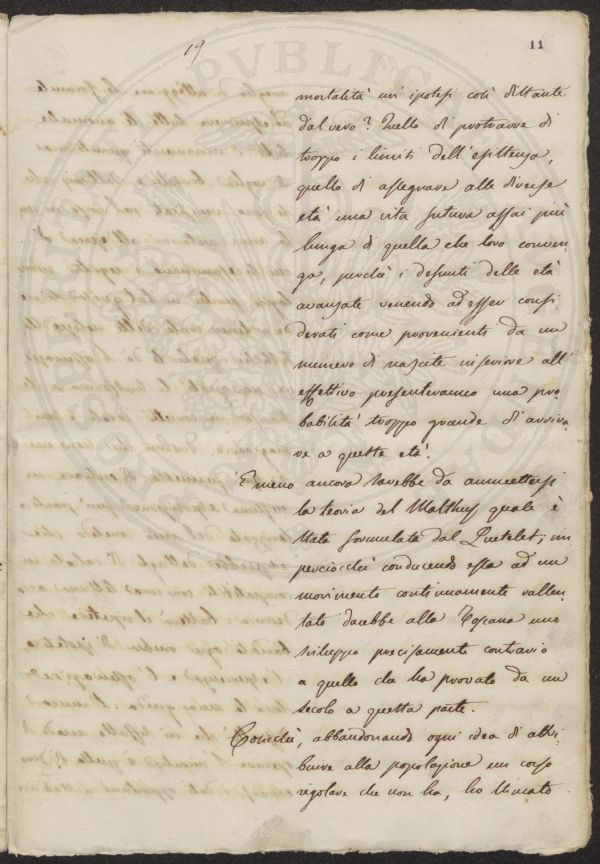 19
11
mortalità un' ipotesi così distante
dal vero? Quello di protrarre di
troppo i limiti dell' esistenza,
quello di assegnare alle diverse
età una vita futura assai più
lunga di quella che loro conven
ga, perchè i defunti delle età
avanzate venendo ad esser consi
derati come provenienti da un
numero di nascite inferiore all'
effettivo presenteranno una pro
babilità troppo grande di arriva
re a queste età.
E meno ancora sarebbe da ammettersi
la teoria del Malthus quale è
stata formulata dal Quetelet; im
perciocchè conducendo essa ad un
movimento continuamente rallen
tato darebbe alla Toscana uno
sviluppo precisamente contrario
a quello che ha provato da un
secolo a questa parte.
Cosicchè, abbandonando ogni idea di attri
buire alla popolazione un corso
regolare che non ha, ho stimato